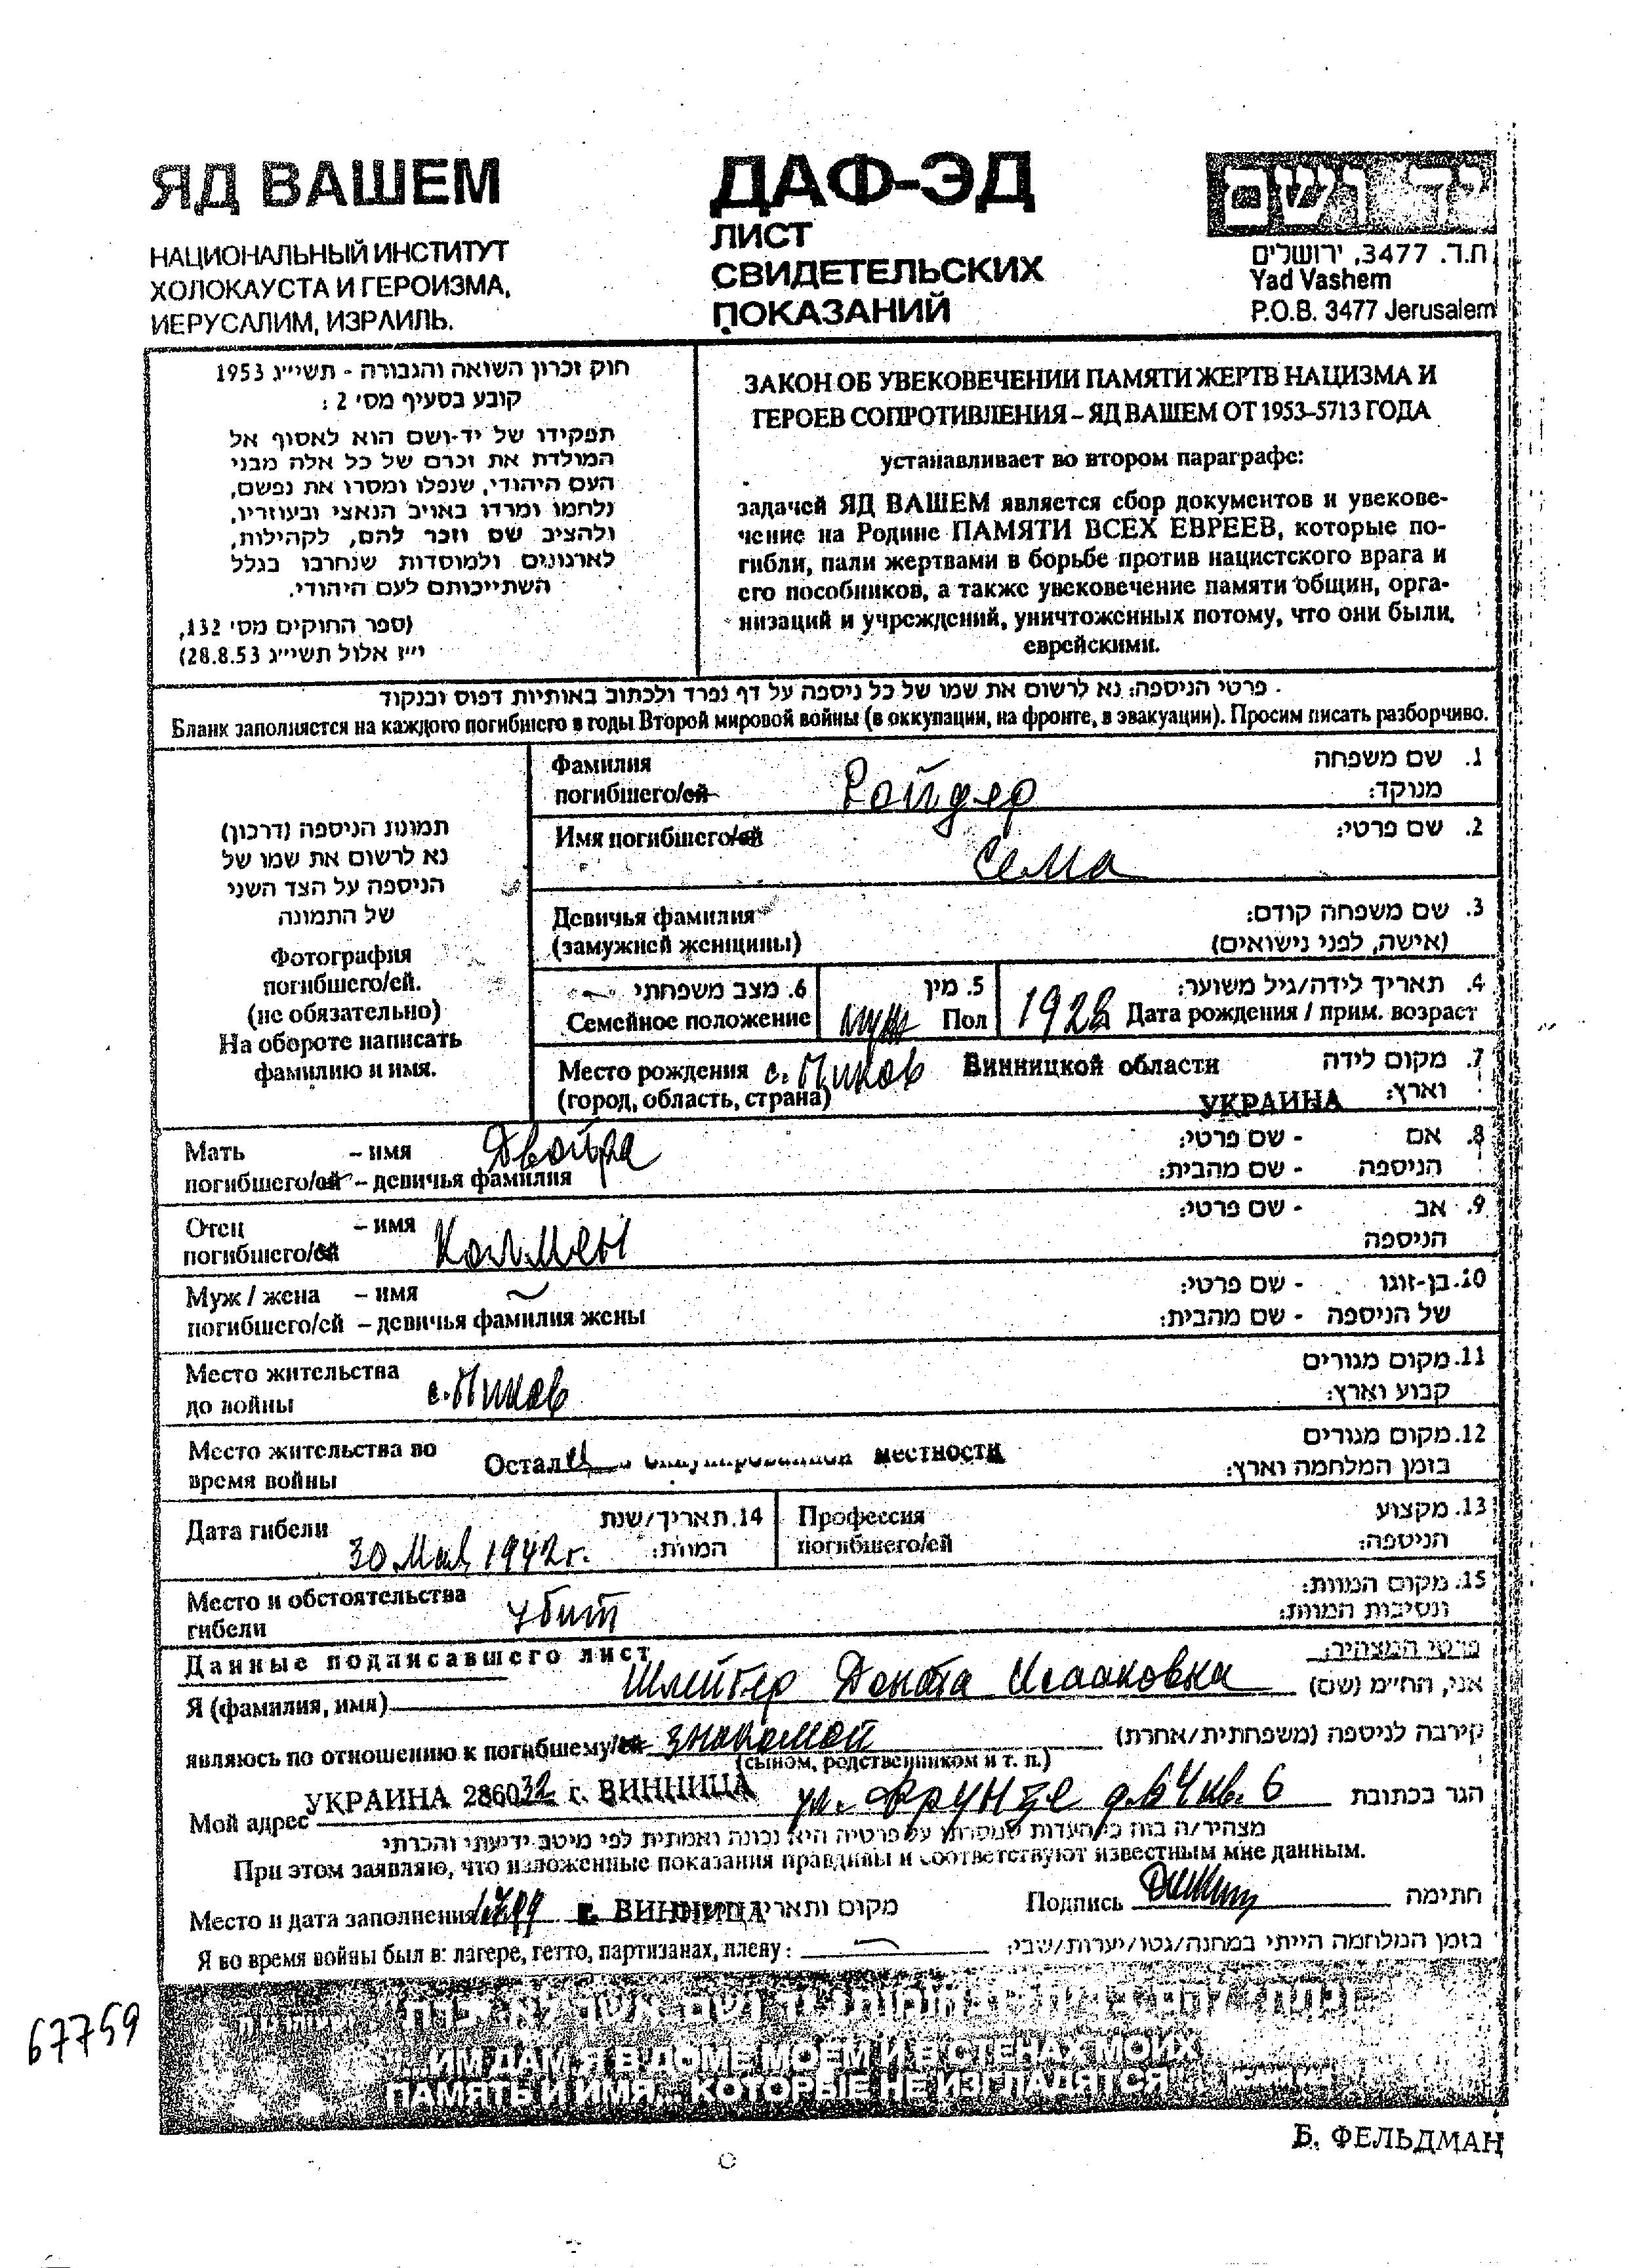 ЯД ВАШЕМ
НАЦИОНАЛЬНЫЙ ИНСТИТУТ
ХОЛОКАУСТА И ГЕРОИЗМА,
ИЕРУСАЛИМ, ИЗРАИЛЬ.
ДАФ-ЭД
ЛИСТ
СВИДЕТЕЛЬСКИХ
ПОКАЗАНИЙ
יד ושם
ת.ד. 3477, ירושלים
Yad Vashem
P.O.B. 3477 Jerusalem
חוק זכרון השואה והגבורה - תשי״ג 1953
קובע בסעיף מס׳ 2 :
תפקידו של יד-ושם הוא לאסוף אל
המולדת את זכרם של כל אלה מבני
העם היהודי, שנפלו ומסרו את נפשם,
נלחמו ומרדו באויב הנאצי ובעוזריו,
ולהציב שם וזכר להם, לקהילות,
לארגונים ולמוסדות שנחרבו בגלל
השתייכותם לעם היהודי.
(ספר החוקים מס׳ 132,
י״ז אלול תשי״ג 28.8.53)
ЗАКОН ОБ УВЕКОВЕЧЕНИИ ПАМЯТИ ЖЕРТВ НАЦИЗМА И
ГЕРОЕВ СОПРОТИВЛЕНИЯ – ЯД ВАШЕМ ОТ 1953-5713 ГОДА
устанавливает во втором параграфе:
задачей ЯД ВАШЕМ является сбор документов и увекове-
чение на Родине ПАМЯТИ ВСЕХ ЕВРЕЕВ, которые по-
гибли, пали жертвами в борьбе против нацистского врага и
его пособников, а также увековечение памяти общин, орга-
низаций и учреждений, уничтоженных потому, что они были
еврейскими.
פרטי הניספה: נא לרשום את שמו של כל ניספה על דף נפרד ולכתוב באותיות דפוס ובנקוד
Бланк заполняется на каждого погибшего в годы Второй мировой войны (в оккупации, на фронте, в эвакуации). Просим писать разборчиво.
תמונת הניספה (דרכון)
נא לרשום את שמו של
הניספה על הצד השני
של התמונה
Фотография
погибшего/ей.
(не обязательно)
На обороте написать
фамилию и имя.
Фамилия 1. שם משפחה
погибшего/ей Ройдер מנוקד:
Имя погибшего/ей Сема 2. שם פרטי:
Девичья фамилия 3. שם משפחה קודם:
(замужней женщины) (אישה, לפני נישואים)
6. מצב משפחתי 5. מין 4. תאריך לידה/גיל משוער:
Семейное положение муж Пол Дата рождения / прим. возраст
Место рождения с. Пиков Винницкой области 7. מקום לידה
(город, область, страна) УКРАИНА וארץ:
Мать – имя Двойра 8. אם - שם פרטי:
погибшего/ей – девичья фамилия הניספה - שם מהבית:
Отец – имя Колмен 9. אב - שם פרטי:
погибшего/ей הניספה
Муж / жена – имя 10. בן-זוגו - שם פרטי:
погибшего/ей – девичья фамилия жены של הניספה - שם מהבית:
Место жительства с. Пиков 11. מקום מגורים
до войны קבוע וארץ:
Место жительства во 12. מקום מגורים
время войны местности בזמן המלחמה וארץ:
Дата гибели 30 Мая 1942 г. 14. תאריך/שנת המוות:
Профессия 13. מקצוע
погибшего/ей הניספה:
Место и обстоятельства убит 15. מקום המוות:
гибели ונסיבות המוות:
Данные подписавшего лист פרטי המצהיר:
Я (фамилия, имя) Исааковна אני, החי״מ (שם)
являюсь по отношению к погибшему/ей знакомой קירבה לניספה (משפחתית/אחרת)
(сыном, родственником и т. п.)
Мой адрес УКРАИНА 286032 г. ВИННИЦА ул. Фрунзе д. 64 кв. 6 הגר בכתובת
מצהיר/ה בזה כי העדות שמסרתי על פרטיה היא נכונה ואמתית לפי מיטב ידיעתי והכרתי
При этом заявляю, что изложенные показания правдивы и соответствуют известным мне данным.
Место и дата заполнения г. ВИННИЦА מקום ותאריך Подпись חתימה
Я во время войны был в: лагере, гетто, партизанах, плену: בזמן המלחמה הייתי במחנה/גטו/יערות/שבי:
...ИМ ДАМ Я В ДОМЕ МОЕМ И В СТЕНАХ МОИХ
ПАМЯТЬ И ИМЯ... КОТОРЫЕ НЕ ИЗГЛАДЯТСЯ
67759
Б. ФЕЛЬДМАН